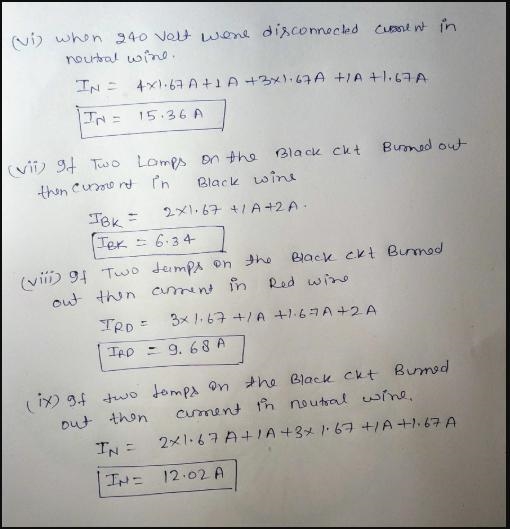 (vi) when 240 volt were disconnected current in
neutral wire.
IN = 4x1.67A+1A+3x1.67A+1A+1.67A
IN = 15.36A
(vii) If Two Lamps on the Black ckt Burned out
then current in Black wire
IBK = 2x1.67+1A+2A.
IBK = 6.34
(viii) If Two Lamps on the Black ckt Burned
out then current in Red wire
IRD = 3x1.67+1A+1.67A+2A
IRD = 9.68A
(ix) If two lamps on the Black ckt Burned
out then current in neutral wire.
IN = 2x1.67A+1A+3x1.67+1A+1.67A
IN = 12.02A